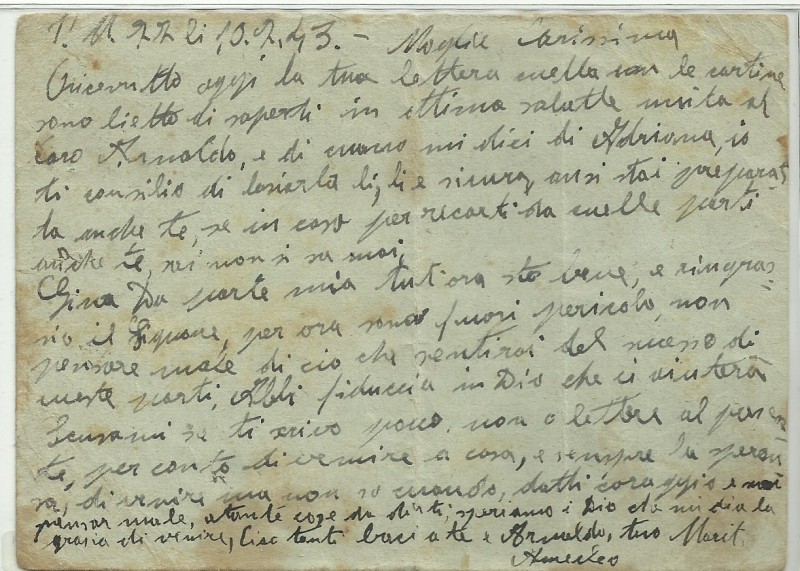 P. M. 22 li 10.2.43. - Moglie Carissima
O ricevutto oggi la tua lettera cuella con le cartine
sono lietto di saperti in ottima salutte unita al
caro Arnaldo, e di cuanto mi dici di Adriana, io
ti consilio di lasiarla li, li e sicura, ansi stai preparat
ta anche te, se in caso per recarti da cuelle parti
anche te, sai non si sa mai,
Gina Da parte mia tutora sto bene, e ringras=
sio il Signore, per ora sono fuori pericolo, non
pensare male di cio che sentirai del sucesso di
cueste parti, Abbi fiduccia in Dio che ci aiuterà
Scusami se ti scrivo poco. non o lettere al presen
te, per conto di venire a casa, e sempre la speran
sa, di venire ma non so cuando, datti coraggio e non
pensar male, atante cose da dirti, speriamo i Dio che mi dia la
grasia di venire, Ciao tanti baci a te e Arnaldo, tuo Marit.
Amedeo